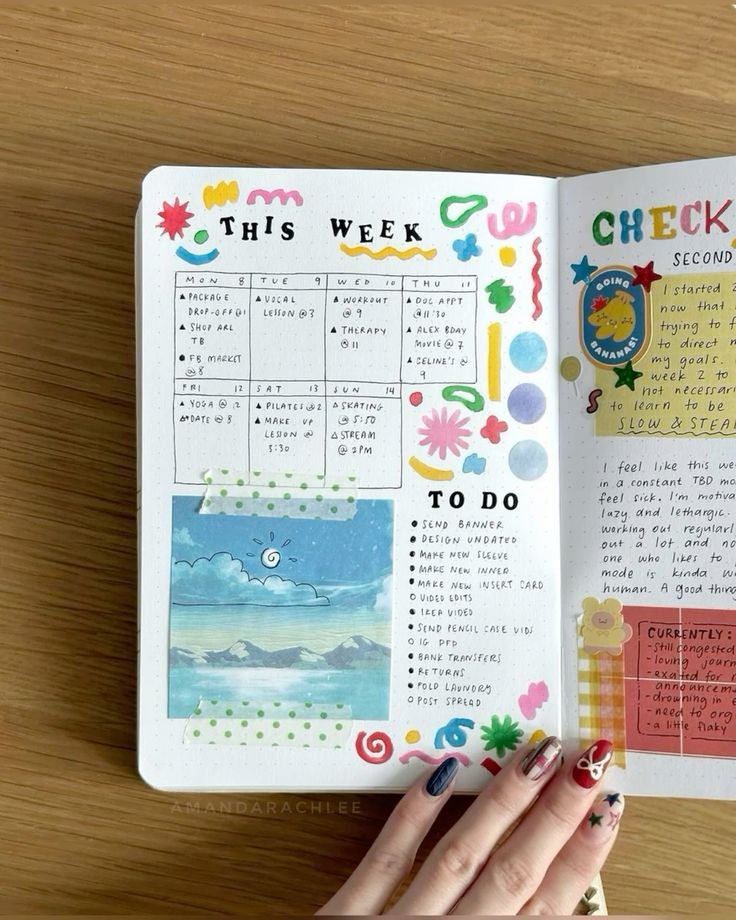 THIS WEEK
MON 8
▲ PACKAGE
DROP-OFF @ 1
▲ SHOP ARL
TB
● FB MARKET
@ 8
TUE 9
▲ VOCAL
LESSON @ 3
WED 10
▲ WORKOUT
@ 9
▲ THERAPY
@ 11
THU 11
▲ DOC APPT
@ 11:30
▲ ALEX BDAY
MOVIE @ 7
▲ CELINE'S @
9
FRI 12
▲ YOGA @ 12
DATE @ 8
SAT 13
▲ PILATES @ 2
▲ MAKE UP
LESSON @
3:30
SUN 14
△ SKATING
@ 5:50
△ STREAM
@ 2PM
TO DO
● SEND BANNER
● DESIGN UNDATED
● MAKE NEW SLEEVE
● MAKE NEW INNER
● MAKE NEW INSERT CARD
○ VIDEO EDITS
● IKEA VIDEO
● SEND PENCIL CASE VIDS
○ IG PFP
● BANK TRANSFERS
● RETURNS
● FOLD LAUNDRY
○ POST SPREAD
CHECK
SECOND
GOING
BANANAS!
I started 2
now that
trying to f
to direct m
my goals.
week 2 to
not necessari
to learn to be
SLOW & STEA
I feel like this we
in a constant TBD mo
feel sick. I'm motiva
lazy and lethargic.
working out regularl
out a lot and no
one who likes to
mode is kinda w
human. A good thing
CURRENTLY:
- still congested
- loving journ
- excited for n
announcem
- drowning in e
- need to org
- a little flaky
AMANDARACHLEE